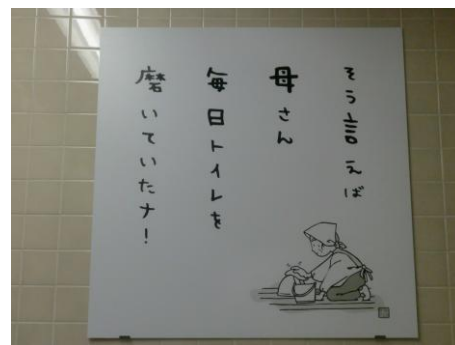 そう言えば
母さん
毎日トイレを
磨いていたナ!